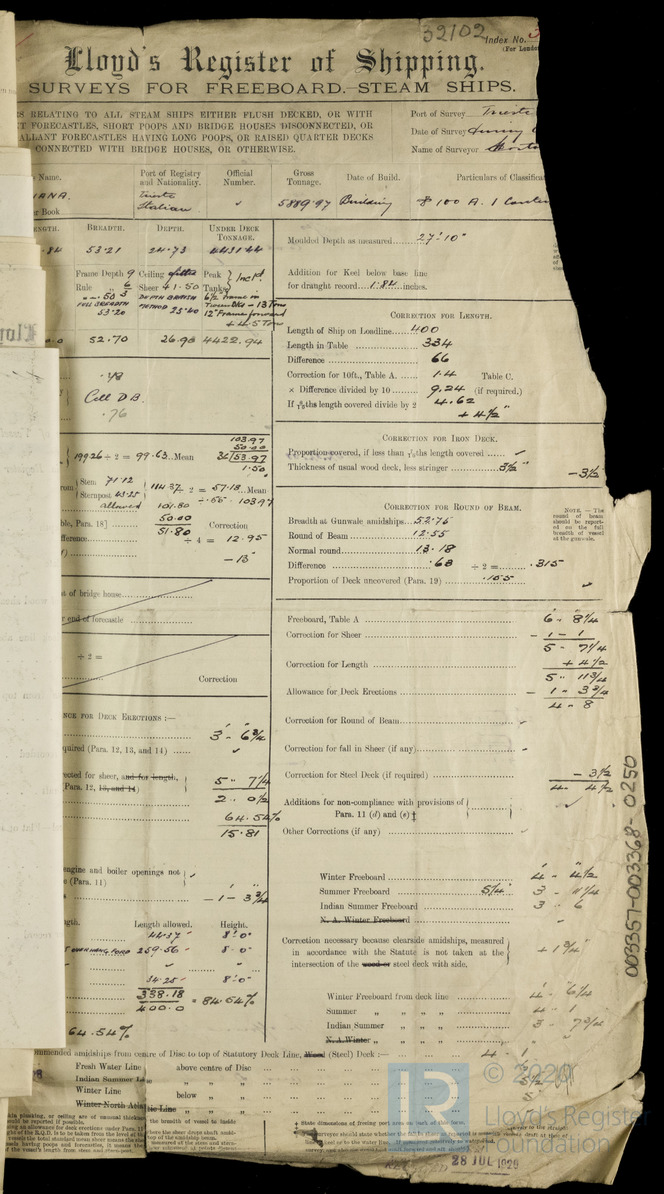 32102
Index No.
(For London
Lloyd's Register of Shipping.
SURVEYS FOR FREEBOARD.—STEAM SHIPS.
RELATING TO ALL STEAM SHIPS EITHER FLUSH DECKED, OR WITH
T FORECASTLES, SHORT POOPS AND BRIDGE HOUSES DISCONNECTED, OR
ALLANT FORECASTLES HAVING LONG POOPS, OR RAISED QUARTER DECKS
CONNECTED WITH BRIDGE HOUSES, OR OTHERWISE.
Port of Survey Trieste
Date of Survey
Name of Surveyor
Name. Port of Registry and Nationality. Official Number. Gross Tonnage. Date of Build. Particulars of Classificat
IANA. Trieste Italian 5889.97 Building 100 A.1
r Book
ENGTH. BREADTH. DEPTH. UNDER DECK TONNAGE.
.84 53.21 24.73 4431.44
Frame Depth 9 Ceiling Peak Tanks Incld.
Rule 6 Sheer +1.50
FULL BREADTH 53.20
DEPTH BRITISH METHOD 25.40
6½ frame in
12" Frame forward
52.70 26.90 4422.94
.48
Cell D.B.
.76
103.97
50.00
36 53.97
1.50
199.26 ÷ 2 = 99.63 Mean
Stem 71.12
Sternpost 43.25
114.37 ÷ 2 = 57.18 Mean
allowed 101.80
50.00
51.80
ble, Para. 18]
fference
Correction
÷ 4 = 12.95
–13
t of bridge house
r end of forecastle
÷ 2 =
Correction
NCE FOR DECK ERECTIONS :—
3 - 6¾
quired (Para. 12, 13, and 14)
rected for sheer, and for length,
(Para. 12, 13, and 14)
5 - 7¼
2 . 0½
64.54%
15.81
engine and boiler openings not
(Para. 11)
–1–3¾
ngth. Length allowed. Height.
44.37 8'.0"
259.56 8.0"
34.25 8'.0"
338.18
400.0
= 84.54%
64.54%
Moulded Depth as measured 27'.10"
Addition for Keel below base line
for draught record 1.84 inches.
CORRECTION FOR LENGTH.
Length of Ship on Loadline 400
Length in Table 334
Difference 66
Correction for 10ft., Table A. 1.4 Table C.
× Difference divided by 10 9.24 (if required.)
If 6/10ths length covered divide by 2 4.62
+ 4½"
CORRECTION FOR IRON DECK.
Proportion covered, if less than 7/10ths length covered
Thickness of usual wood deck, less stringer 3½" –3½
CORRECTION FOR ROUND OF BEAM.
Breadth at Gunwale amidships 52.75
Round of Beam 12.55
Normal round 13.18
Difference .63 ÷ 2 = .315
Proportion of Deck uncovered (Para. 19) .155
NOTE. — The
round of beam
should be report-
ed on the full
breadth of vessel
at the gunwale.
Freeboard, Table A 6 - 8¼
Correction for Sheer – 1 - 1
5 - 7¼
Correction for Length + 4½
5 - 11¾
Allowance for Deck Erections – 1 - 3¾
4 - 8
Correction for Round of Beam
Correction for fall in Sheer (if any)
Correction for Steel Deck (if required) – 3½
4 - 4½
Additions for non-compliance with provisions of
Para. 11 (d) and (e) ‡
Other Corrections (if any)
Winter Freeboard 4 - 4½
Summer Freeboard 5¼" 3 - 11¼
Indian Summer Freeboard 3 - 6
N. A. Winter Freeboard
Correction necessary because clearside amidships, measured
in accordance with the Statute is not taken at the
intersection of the wood or steel deck with side.
+ 1¾"
Winter Freeboard from deck line 4 - 6¼
Summer „ „ „ „ 4 - 1
Indian Summer „ „ „ 3 - 7¾
N. A. Winter „ „ „
mmended amidships from centre of Disc to top of Statutory Deck Line, Wood (Steel) Deck :— 4 - 1
Fresh Water Line above centre of Disc
Indian Summer Line „ „
Winter Line below „
Winter North Atlantic Line „ „
003357-003368-0250
© 2020
Lloyd's Register
Foundation
LR
28 JUL 1920